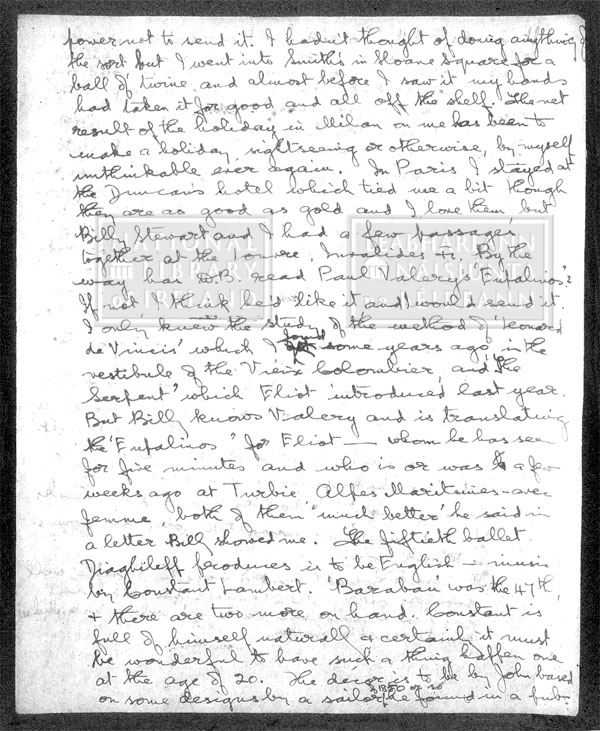 power not to send it. I hadn't thought of doing anything of
the sort but I went into Smith's in Sloane Square for a
ball of twine and almost before I saw it my hands
had taken it for good and all off the shelf. The net
result of the holiday in Milan on me has been to
make a holiday, sightseeing or otherwise, by myself
unthinkable ever again. In Paris I stayed at
the Duncan's hotel which tied me a bit though
they are as good as gold and I love them but
Billy Stewart and I had a few passages
together at the Louvre, Invalides etc. By the
way has W.B. read Paul Valery's 'Eupalinos'?
If not I think he'd like it and I would send it.
I only knew the study of the method of 'Leonard
de Vinci's' which I found some years ago in the
vestibule of the Vieux Colombier, and 'the
Serpent' which Eliot introduced last year.
But Billy knows Valery and is translating
the "Eupalinos" for Eliot — whom he has seen
for five minutes and who is or was a few
weeks ago at Turbie Alpes Maritimes - avec
femme, both of them 'much better' he said in
a letter Billy showed me. The fiftieth ballet
Diaghileff produces is to be English — music
by Constant Lambert. 'Barabau' was the 47th,
+ there are two more on hand. Constant is
full of himself naturally & certainly it must
be wonderful to have such a thing happen one
at the age of 20. The decor is to be by John based
on some designs by a sailor, 1850 or so he found in a pub.
NATIONAL LIBRARY OF IRELAND
LEABHARLANN NÁISIÚNTA NA hÉIREANN